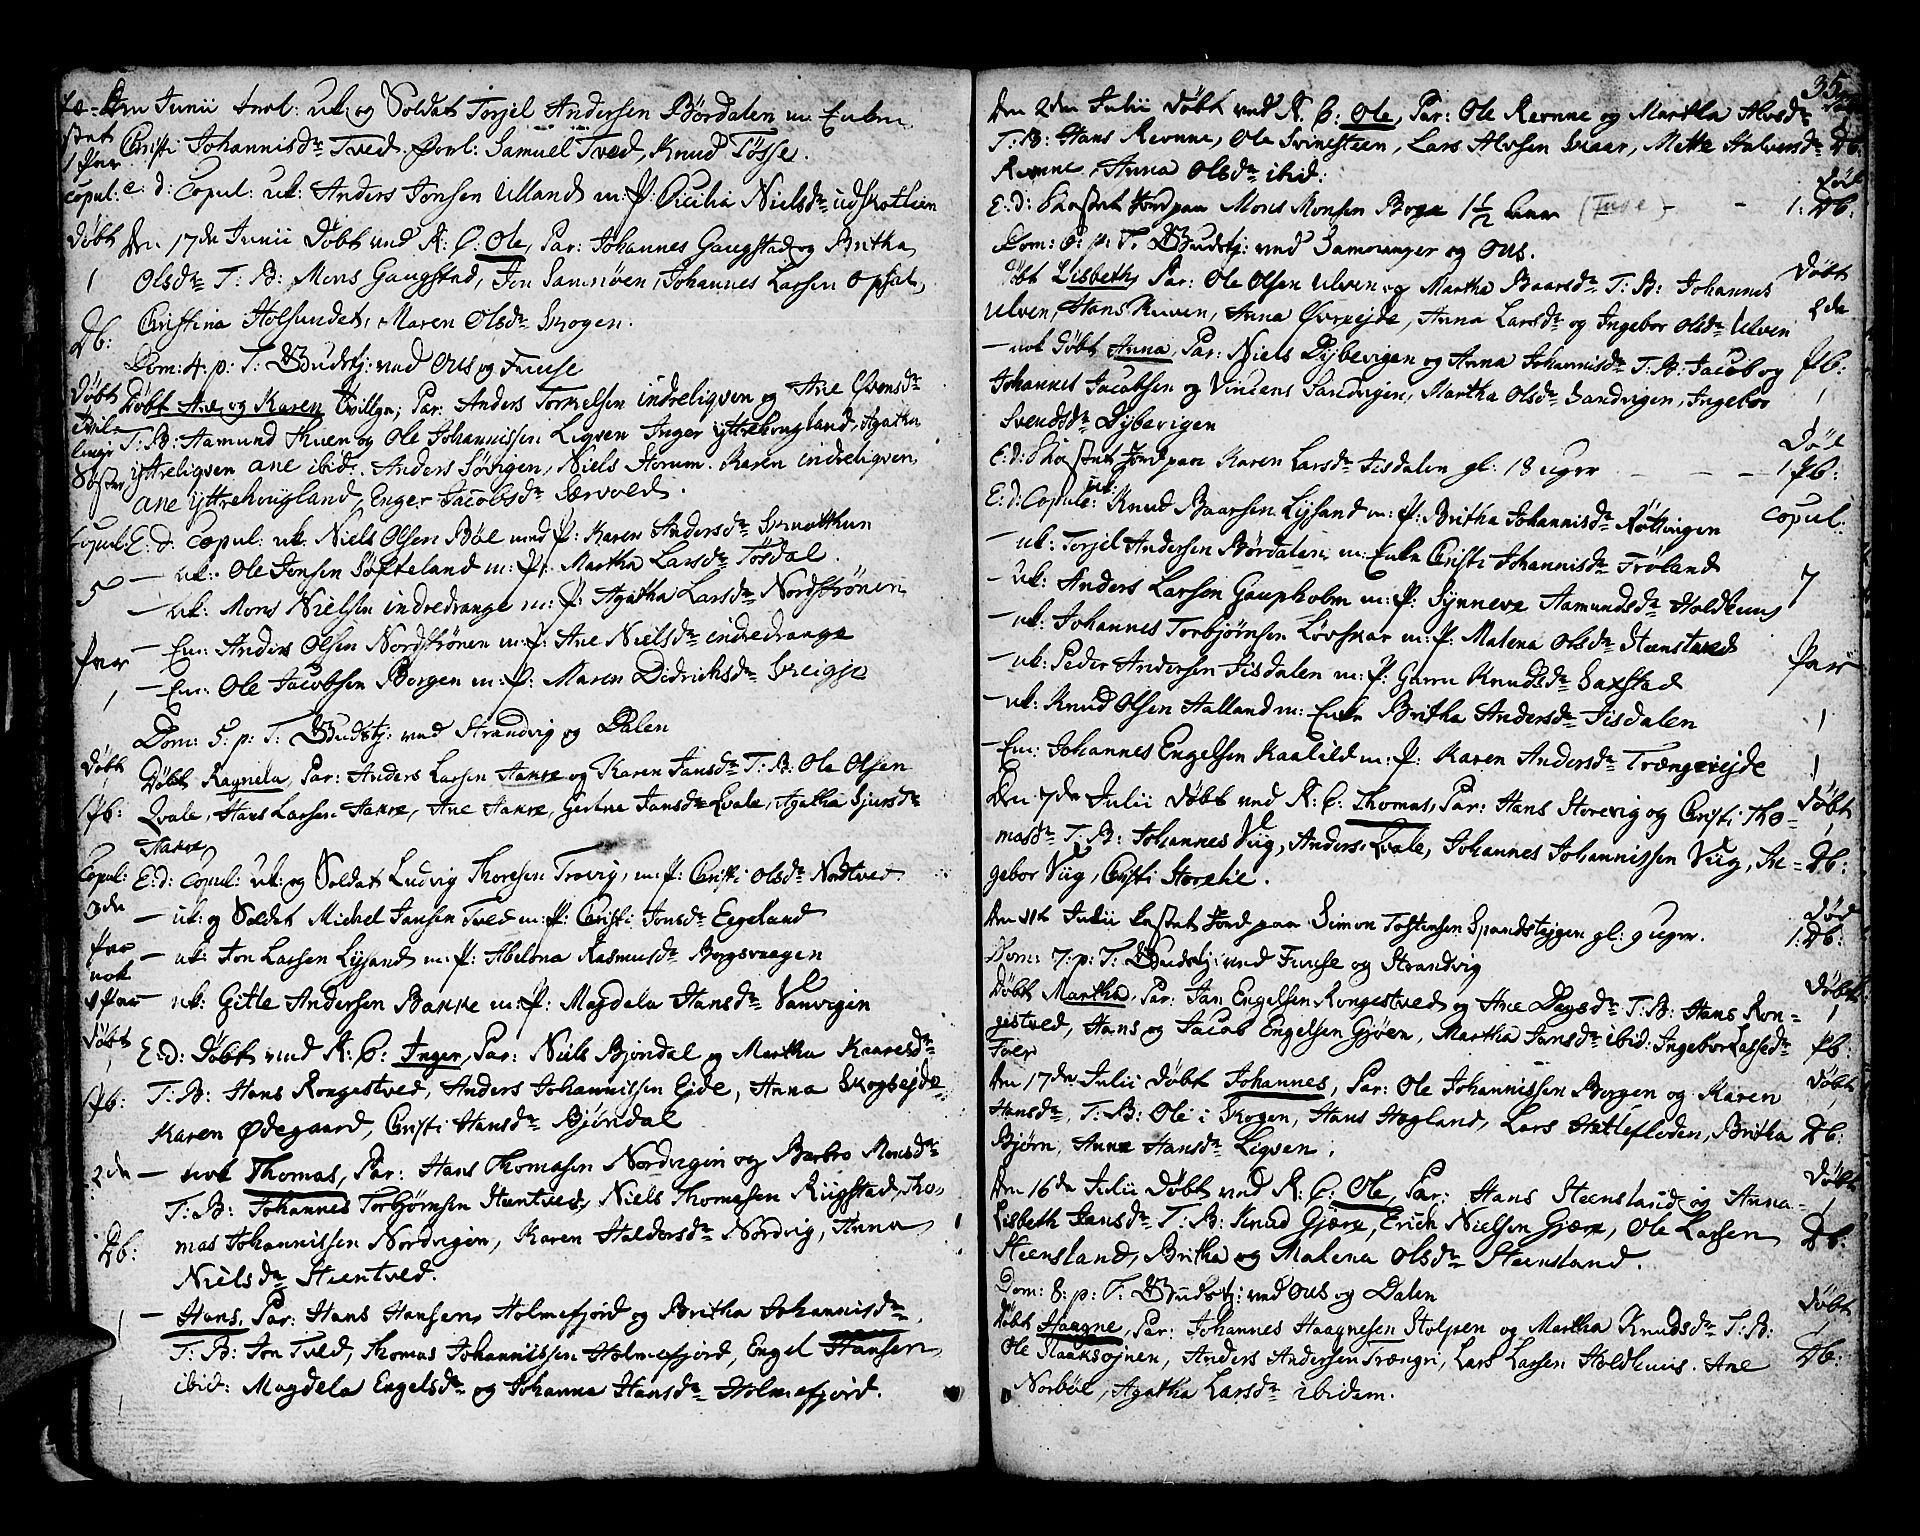 Den Junii trol: uk: og Soldat Torjel Andersen Bördalen m: Enken
Christi Johannisdr Tved. Forl: Samuel Tved, Knud Tösse.
copul: e: d: Copul: uk: Anders Jonsen Ulland m: P: Cicilia Nielsdr udskothien
Döbt Den 17de Junii Döbt ved K: C: Ole, Par: Johannes Gaugstad og Britha
1 Olsdr T: B: Mons Gaugstad, Jon Samnöen, Johannes Larsen opsal,
Db: Christina Holsundet, Maren Olsdr Skogen.
Dom: 4: p: T: Gudstj: ved Ous og Fuuse
Döbt Döbt Ane og Karen Tvillger, Par: Anders Torkelsen indreliqven og Ane Evensdr
T: B: Aamund Thuen og Ole Johannissen Liqven Inger yttrehougland, Agatha
Söster yttreliqven ane ibid: Anders Sövigen, Niels Storum. Karen indreliqven,
ane yttrehougland, Enger Jacobsdr Særvold.
Copul: E: d: Copul: uk: Niels Olsen Böe med P: Karen Andersdr
— uk: Ole Jonsen Söfteland m: P: Martha Larsdr Tösdal.
5 — uk: Mons Nielsen indredrange m: P: Agatha Larsdr Nordströnen
— Em: Anders Olsen Nordströnen m: P: Ane Nielsdr indredrange
Par
1 — Em: Ole Jacobsen Borgen m: P: Maren Didrichsdr Skeigje
Dom: 5: p: T: Gudstj: ved Strandvig og Dalen
Döbt Döbt Ragnela, Par: Anders Larsen Hakre og Karen Jansdr T: B: Ole Olsen
Pb: Qvale, Hans Larsen Hakre, Ane Hakre, Gertrue Jansdr Qvale, Agatha Sjursdr
Copul: E: d: Copul: uk: og Soldat Ludvig Thoresen Trovig, m: P: Christi Olsdr Nordtved
3de — uk: og Soldat Michel Jansen Tved m: P: Christi Jonsdr Eegeland
Par — uk: Jon Larsen Lysand m: P: Abelona Rasmusdr Borgsvaagen
nok
1 Par — uk: Gitle Andersen Bakke m: P: Magdela Hansdr Vanvigin
Döbt E: d: Döbt ved K: C: Inger, Par: Niels Bjöndal og Martha Knaresdr
Pb: T: B: Hans Rongestved, Anders Johannissen Eide, Anna Skogsejde
Karen Ödegaard, Christi Hansdr Bjöndal
2de — nok Thomas, Par: Hans Thomasen Nordvigin og Barbro Monsdr
T: B: Johannes Torbjörnsen Steentved, Niels Thomasen Rügstad, Tho-
mas Johannissen Nordvigin, Karen Haldersdr Nordvig, Anna
Db: Nielsdr Steentved.
— Hans, Par: Hans Hansen Holmefjord og Britha Johannisdr
T: B: Jon Tved, Thomas Johannissen Holmefjord, Engel Hansen
ibid: Magdela Engelsdr og Johanna Hansdr Holmefjord.
35
Den 2den Julii döbt ved K. C: Ole, Par: Ole Revnne og Martha Alvsdr
T: B: Hans Revnne, Ole Svinestien, Lars Alvsen Skaar, Mette Halversdr Db:
Revnne, Anna Olsdr ibid:
E: d: kastet Jord paa Mons Monsen Boge 1½ Aar (Fuse) — — 1: Db:
Dom: 6: p: T. Gudstj: ved Samnanger og Ous.
Döbt Lisbeth, Par: Ole Olsen Ulven og Martha Baarsdr T: B: Johannes Döbt
Ulven, Hans Ruven, Anna Övreejde, Anna Larsdr og Ingebor Olsdr Ulven 2de
— nok döbt Anna, Par: Niels Dybevigen og Anna Johannisdr T: B: Jacob og Pb:
Johannes Jacobsen og Vincens Sandvigen, Martha Olsdr Sandvigen, Ingebor 1
Svendsdr Dybevigen
Död
E: d: kastet Jord paa Karen Larsdr Tisdalen gl: 18 uger — — — 1 Pb:
E: d: Copule: uk: Knud Baarsen Lysand m: P: Britha Johannisdr Röttingen copul:
— uk: Torjel Andersen Bördalen m: Enke Christi Johannisdr Fröland
— Uk: Anders Larsen Gaupholm m: P: Synneve Aamundsdr Holdhuus 7
— uk: Johannes Torbjörnsen Lövskar m: P: Malena Olsdr Steenstved
— uk: Peder Andersen Tisdalen m: P: Guru Knudsdr Saxstad Par
— uk: Knud Olsen Aalland m: Enke Britha Andersdr Tisdalen 1
— Em: Johannes Engelsen Kaalild m: P: Karen Andersdr Trængereide 1
Den 7de Julii döbt ved K: C: Thomas, Par: Hans Storevig og Christi Tho- Döbt
masdr T: B: Johannes Viig, Anders Qvale, Johannes Johannissen Viig, In- Db:
gebor Viig, Christi Storelie.
Den 11te Julii kastet Jord paa Simon Tostensen Spandstijgen gl: 9 uger. Död 1: Db:
Dom: 7: p: T: Gudstj: ved Fuuse og Strandvig
Döbt Martha, Par: Jan Engelsen Rongestved og Ane Dagsdr T: B: Hans Ron- Döbt
gestved, Hans og Jacob Engelsen Gjöen, Martha Jansdr ibid: Ingebor Lassedr Pb:
Den 17de Julii döbt Johannes, Par: Ole Johannissen Borgen og Karen Döbt
Hansdr, T: B: Ole i Skogen, Hans Hogland, Lars Hetlefloden, Britha Db:
Björn, Anne Hansdr Liqven.
Den 16de Julii döbt ved K: C: Ole, Par: Hans Steensland og Anna Döbt
Lisbeth Jansdr T: B: Knud Gjære, Erich Nielsen Gjære, Ole Larsen Db:
Steensland, Britha og Malena Olsdr Steensland.
Dom: 8: p: T. Gudstj: ved Ous og Dalen
Döbt Haagne, Par: Johannes Haagnesen Stolpen og Martha Knudsdr T: B: Döbt
Ole Slaaksöjnen, Anders Andersen Trængri, Lars Larsen Holdhuus. Ane Db:
Norböe, Agatha Larsdr ibidem.